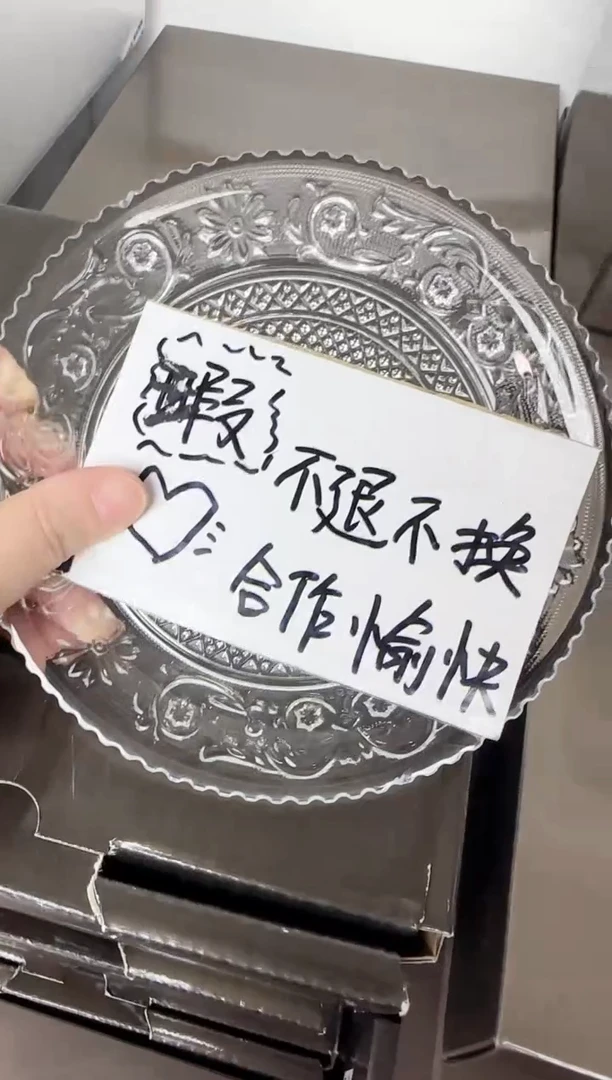 暇 不退不换
合作愉快